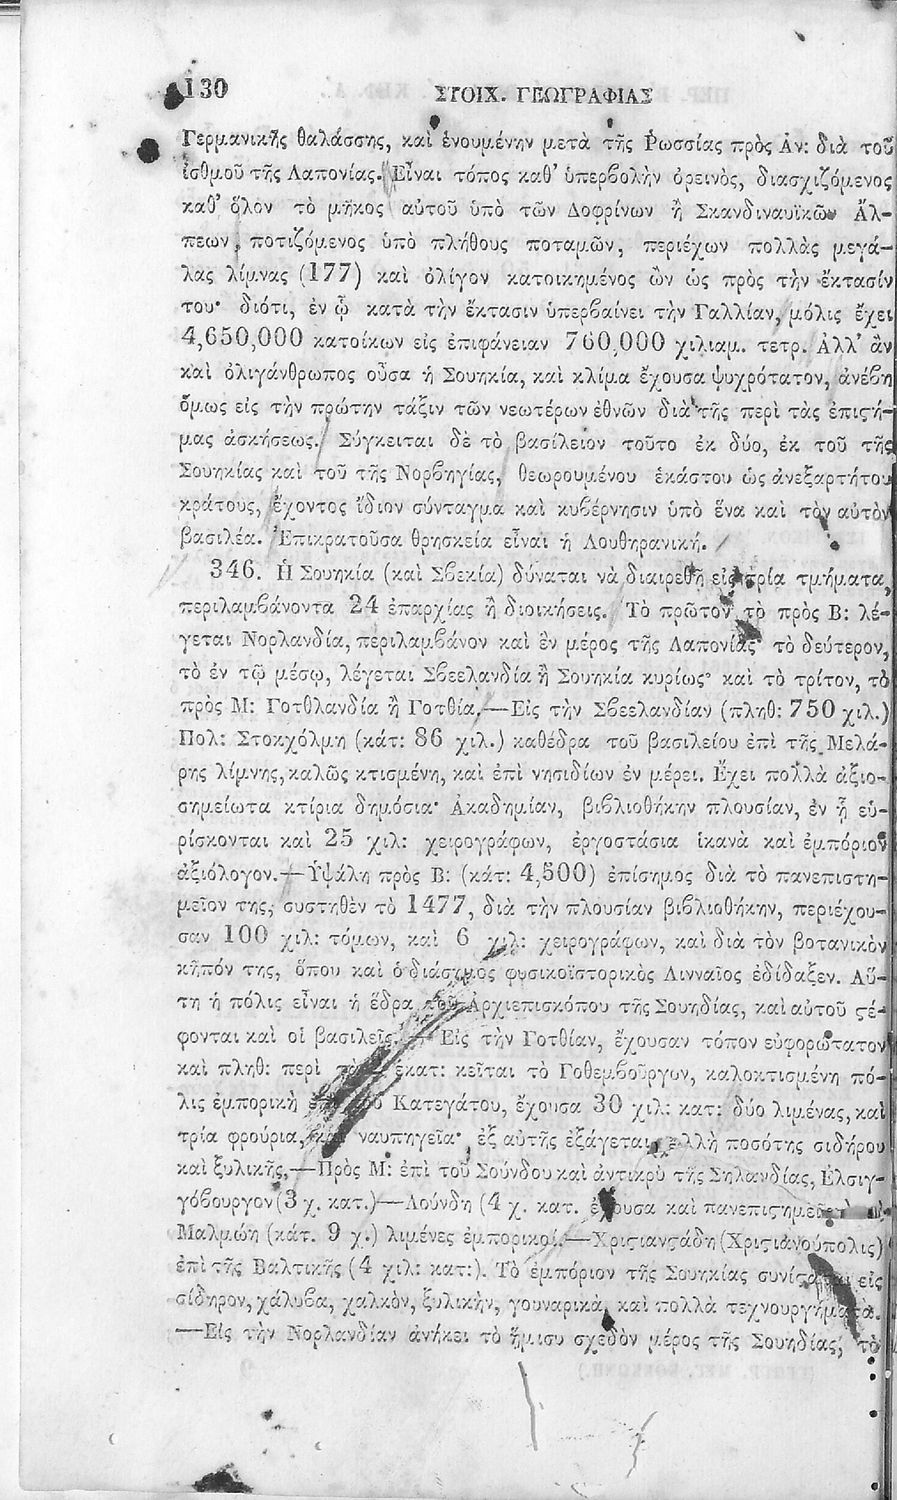 130
ΣΤΟΙΧ. ΓΕΩΓΡΑΦΙΑΣ
Γερμανικῆς θαλάσσης, καὶ ἑνουμένην μετὰ τῆς Ῥωσσίας πρὸς Ἀν: διὰ τοῦ
ἰσθμοῦ τῆς Λαπονίας. Εἶναι τόπος καθ' ὑπερβολὴν ὀρεινὸς, διασχιζόμενος
καθ' ὅλον τὸ μῆκος αὐτοῦ ὑπὸ τῶν Δοφρίνων ἢ Σκανδιναυϊκῶν Ἄλ-
πεων, ποτιζόμενος ὑπὸ πλήθους ποταμῶν, περιέχων πολλὰς μεγά-
λας λίμνας (177) καὶ ὀλίγον κατοικημένος ὢν ὡς πρὸς τὴν ἔκτασίν
του· διότι, ἐν ᾧ κατὰ τὴν ἔκτασιν ὑπερβαίνει τὴν Γαλλίαν, μόλις ἔχει
4,650,000 κατοίκων εἰς ἐπιφάνειαν 760,000 χιλιαμ. τετρ. Ἀλλ' ἂν
καὶ ὀλιγάνθρωπος οὖσα ἡ Σουηκία, καὶ κλίμα ἔχουσα ψυχρότατον, ἀνέβη
ὅμως εἰς τὴν πρώτην τάξιν τῶν νεωτέρων ἐθνῶν διὰ τῆς περὶ τὰς ἐπιϛή-
μας ἀσκήσεως. Σύγκειται δὲ τὸ βασίλειον τοῦτο ἐκ δύο, ἐκ τοῦ τῆς
Σουηκίας καὶ τοῦ τῆς Νορβηγίας, θεωρουμένου ἑκάστου ὡς ἀνεξαρτήτου
κράτους, ἔχοντος ἴδιον σύνταγμα καὶ κυβέρνησιν ὑπὸ ἕνα καὶ τὸν αὐτὸν
βασιλέα. Ἐπικρατοῦσα θρησκεία εἶναι ἡ Λουθηρανική.
346. Ἡ Σουηκία (καὶ Σβεκία) δύναται νὰ διαιρεθῇ εἰς τρία τμήματα,
περιλαμβάνοντα 24 ἐπαρχίας ἢ διοικήσεις. Τὸ πρῶτον τὸ πρὸς Β: λέ-
γεται Νορλανδία, περιλαμβάνον καὶ ἓν μέρος τῆς Λαπονίας τὸ δεύτερον,
τὸ ἐν τῷ μέσῳ, λέγεται Σβεελανδία ἢ Σουηκία κυρίως· καὶ τὸ τρίτον, τὸ
πρὸς Μ: Γοτθλανδία ἢ Γοτθία.—Εἰς τὴν Σβεελανδίαν (πληθ: 750 χιλ.)
Πολ: Στοκχόλμη (κάτ: 86 χιλ.) καθέδρα τοῦ βασιλείου ἐπὶ τῆς Μελά-
ρης λίμνης, καλῶς κτισμένη, καὶ ἐπὶ νησιδίων ἐν μέρει. Ἔχει πολλὰ ἀξιο-
σημείωτα κτίρια δημόσια· Ἀκαδημίαν, βιβλιοθήκην πλουσίαν, ἐν ᾗ εὑ-
ρίσκονται καὶ 25 χιλ: χειρογράφων, ἐργοστάσια ἱκανὰ καὶ ἐμπόριον
ἀξιόλογον.—Ὑψάλη πρὸς Β: (κάτ: 4,500) ἐπίσημος διὰ τὸ πανεπιστη-
μεῖον της, συστηθὲν τὸ 1477, διὰ τὴν πλουσίαν βιβλιοθήκην, περιέχου-
σαν 100 χιλ: τόμων, καὶ 6 χιλ: χειρογράφων, καὶ διὰ τὸν βοτανικὸν
κῆπόν της, ὅπου καὶ ὁ διάσημος φυσικοϊστορικὸς Λινναῖος ἐδίδαξεν. Αὕ-
τη ἡ πόλις εἶναι ἡ ἕδρα τοῦ Ἀρχιεπισκόπου τῆς Σουηδίας, καὶ αὐτοῦ ϛέ-
φονται καὶ οἱ βασιλεῖς.— Εἰς τὴν Γοτθίαν, ἔχουσαν τόπον εὐφορώτατον
καὶ πληθ: περὶ ἑκατ: κεῖται τὸ Γοθεμβοῦργον, καλοκτισμένη πό-
λις ἐμπορικὴ Κατεγάτου, ἔχουσα 30 χιλ: κατ: δύο λιμένας, καὶ
τρία φρούρια, καὶ ναυπηγεῖα· ἐξ αὐτῆς ἐξάγεται πολλὴ ποσότης σιδήρου
καὶ ξυλικῆς.—Πρὸς Μ: ἐπὶ τοῦ Σούνδου καὶ ἀντικρὺ τῆς Σηλανδίας, Ἐλσιγ-
γόβουργον (3 χ. κατ.)—Λούνδη (4 χ. κατ. ἔχουσα καὶ πανεπιϛημεῖον
Μαλμώη (κάτ. 9 χ.) λιμένες ἐμπορικοί.—Χριϛιανϛάδη (Χριϛιανούπολις)
ἐπὶ τῆς Βαλτικῆς (4 χιλ: κατ:). Τὸ ἐμπόριον τῆς Σουηκίας συνίϛαται εἰς
σίδηρον, χάλυβα, χαλκὸν, ξυλικὴν, γουναρικὰ, καὶ πολλὰ τεχνουργήματα.
—Εἰς τὴν Νορλανδίαν ἀνήκει τὸ ἥμισυ σχεδὸν μέρος τῆς Σουηδίας, τὸ